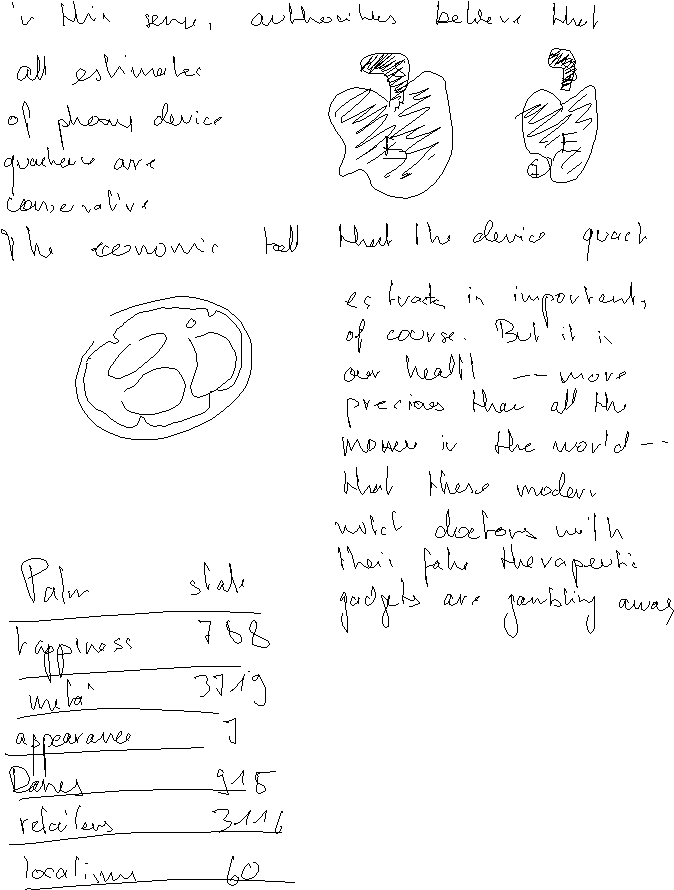 in this sense, authorities believe that
all estimates
of phony device
quackery are
conservative
The economic toll that the device quack
extracts is important,
of course. But it is
our health -- more
precious than all the
money in the world --
that these modern
witch doctors with
their fake therapeutic
gadgets are gambling away
E
E
G
Palm state
happiness 788
metal 3719
appearance 7
Danes 915
retailers 3116
localisms 60